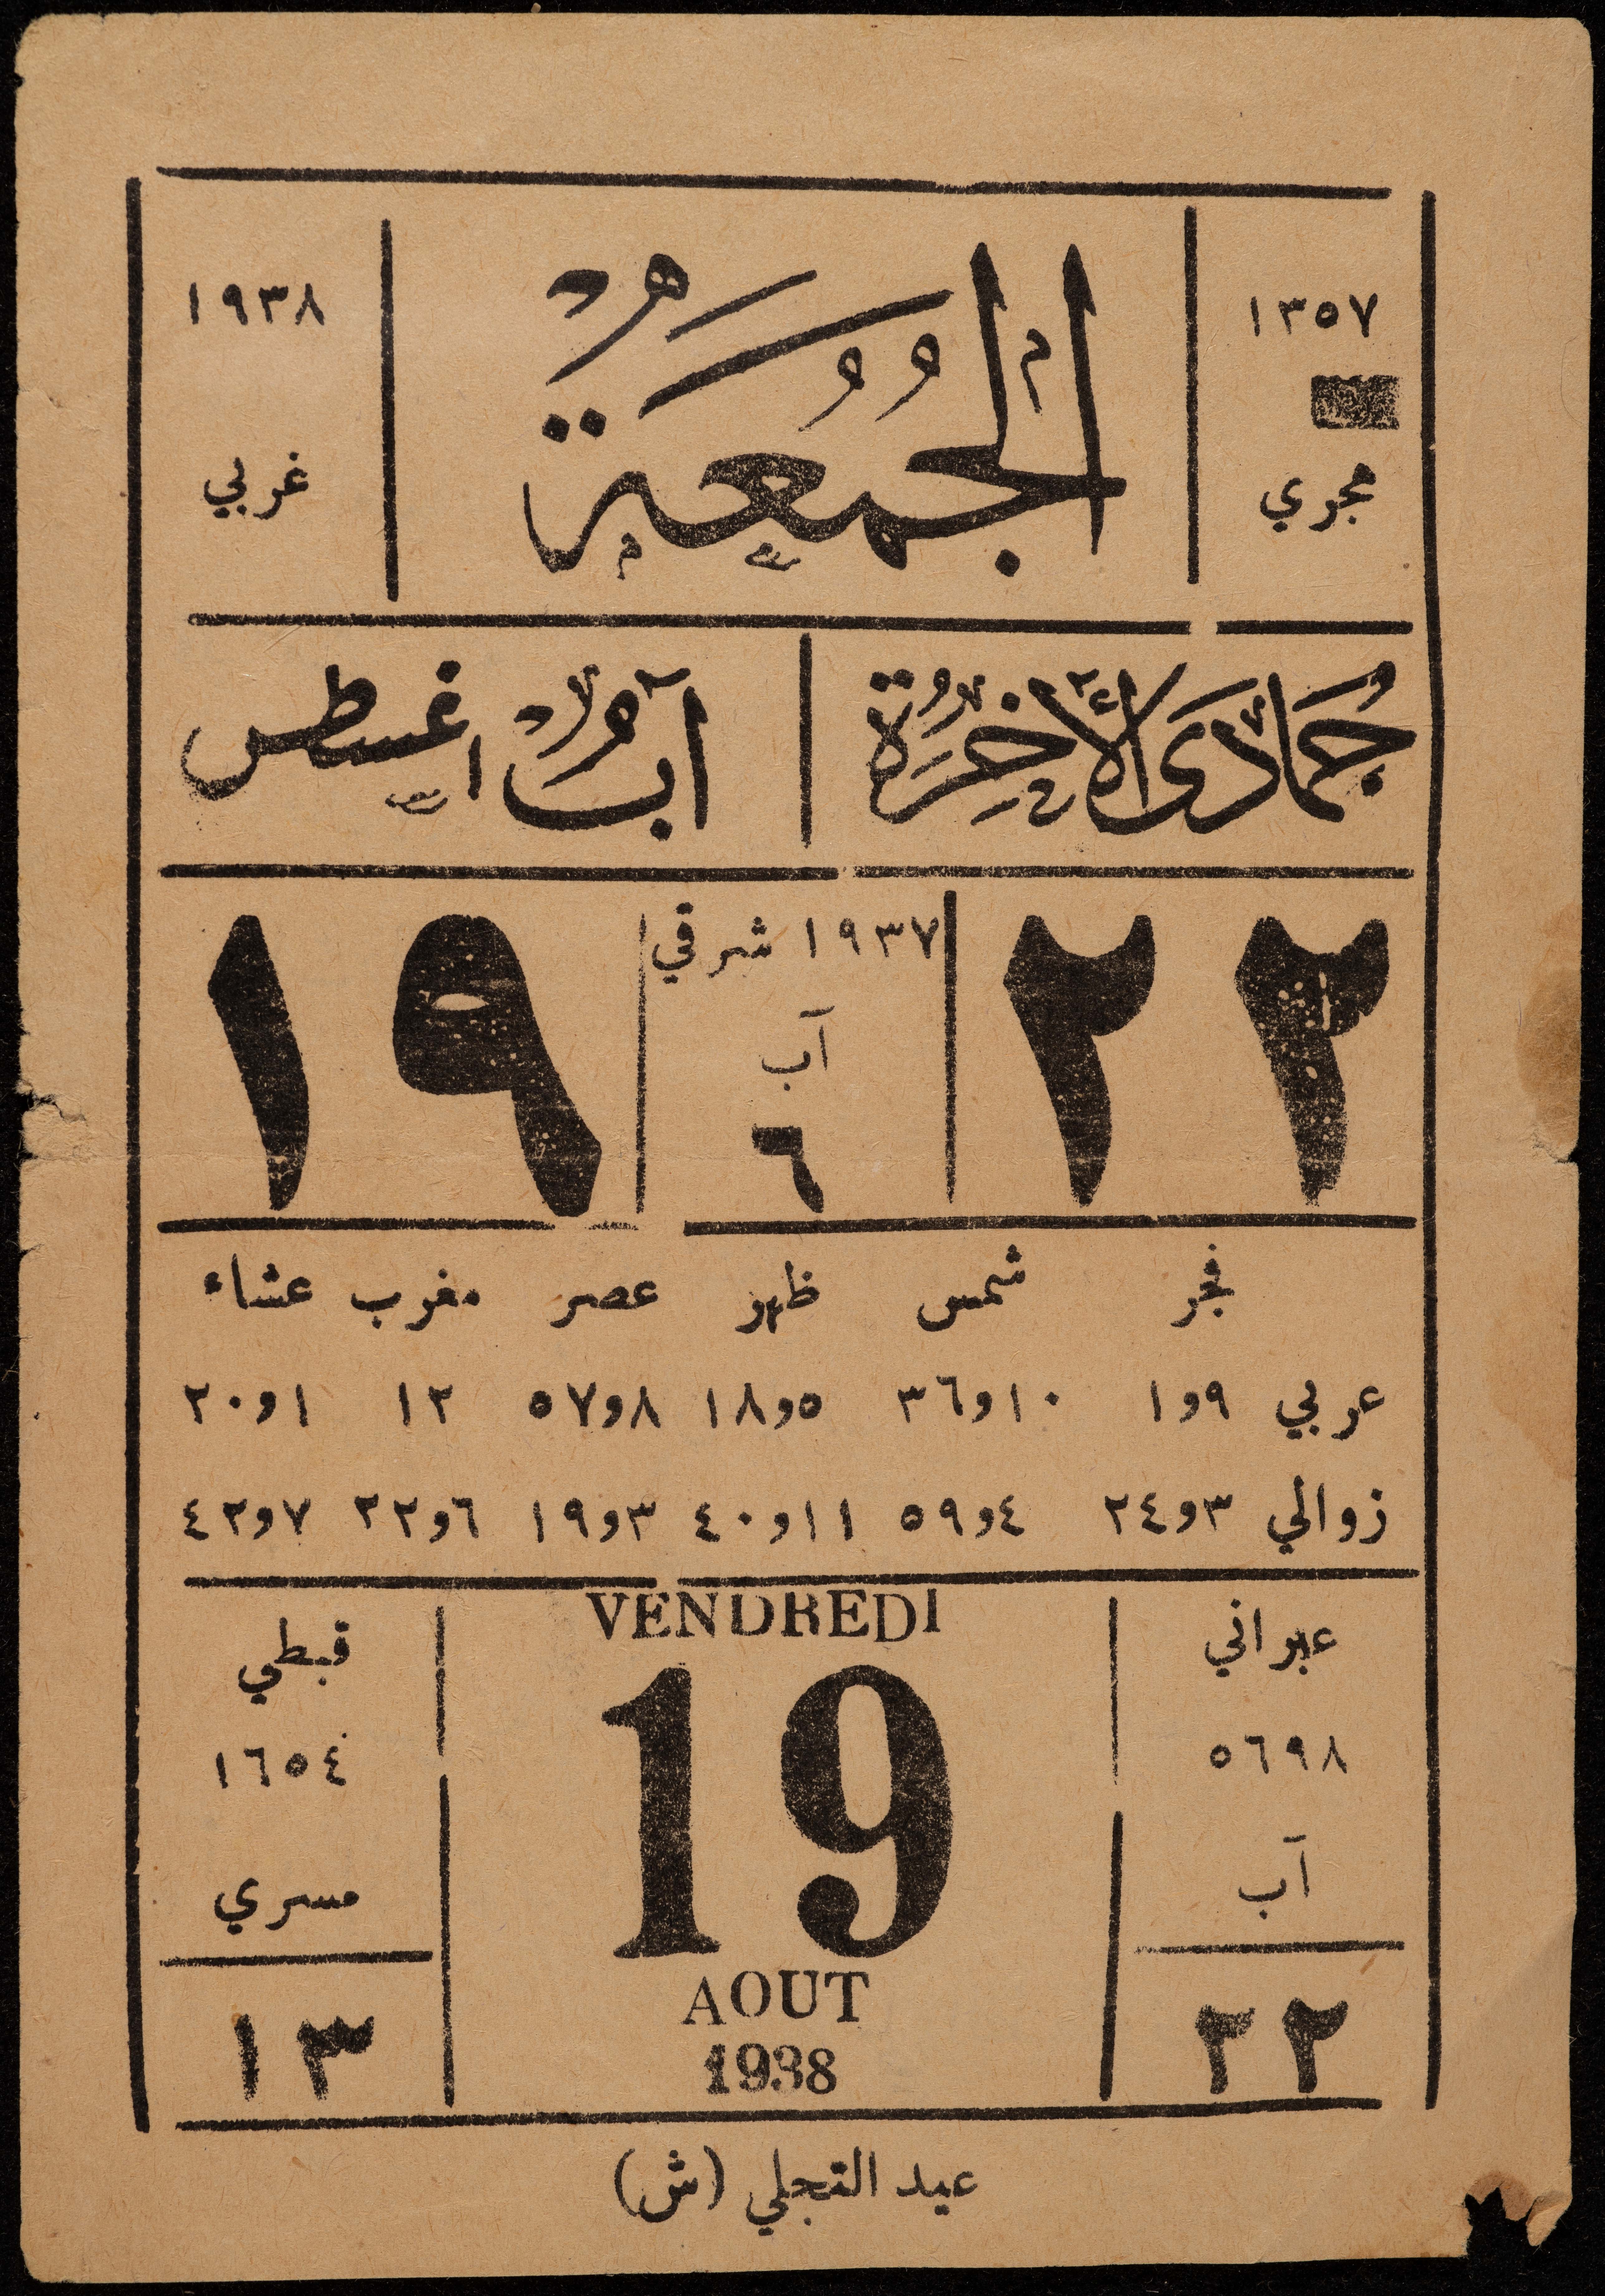 ١٣٥٧
هجري
الجُمُعَة
١٩٣٨
غربي
جُمَادَى الأخِرَة
آب اغسطس
٢٢
١٩٣٧ شرقي
آب
٦
١٩
فجر شمس ظهر عصر مغرب عشاء
عربي ٩و١ ١٠و٣٦ ٥و١٨ ٨و٥٧ ١٢ ١و٢٠
زوالي ٣و٢٤ ٤و٥٩ ١١و٤٠ ٣و١٩ ٦و٢٢ ٧و٤٢
عبراني
٥٦٩٨
آب
٢٢
VENDREDI
19
AOUT
1938
قبطي
١٦٥٤
مسري
١٣
عيد التجلي (ش)